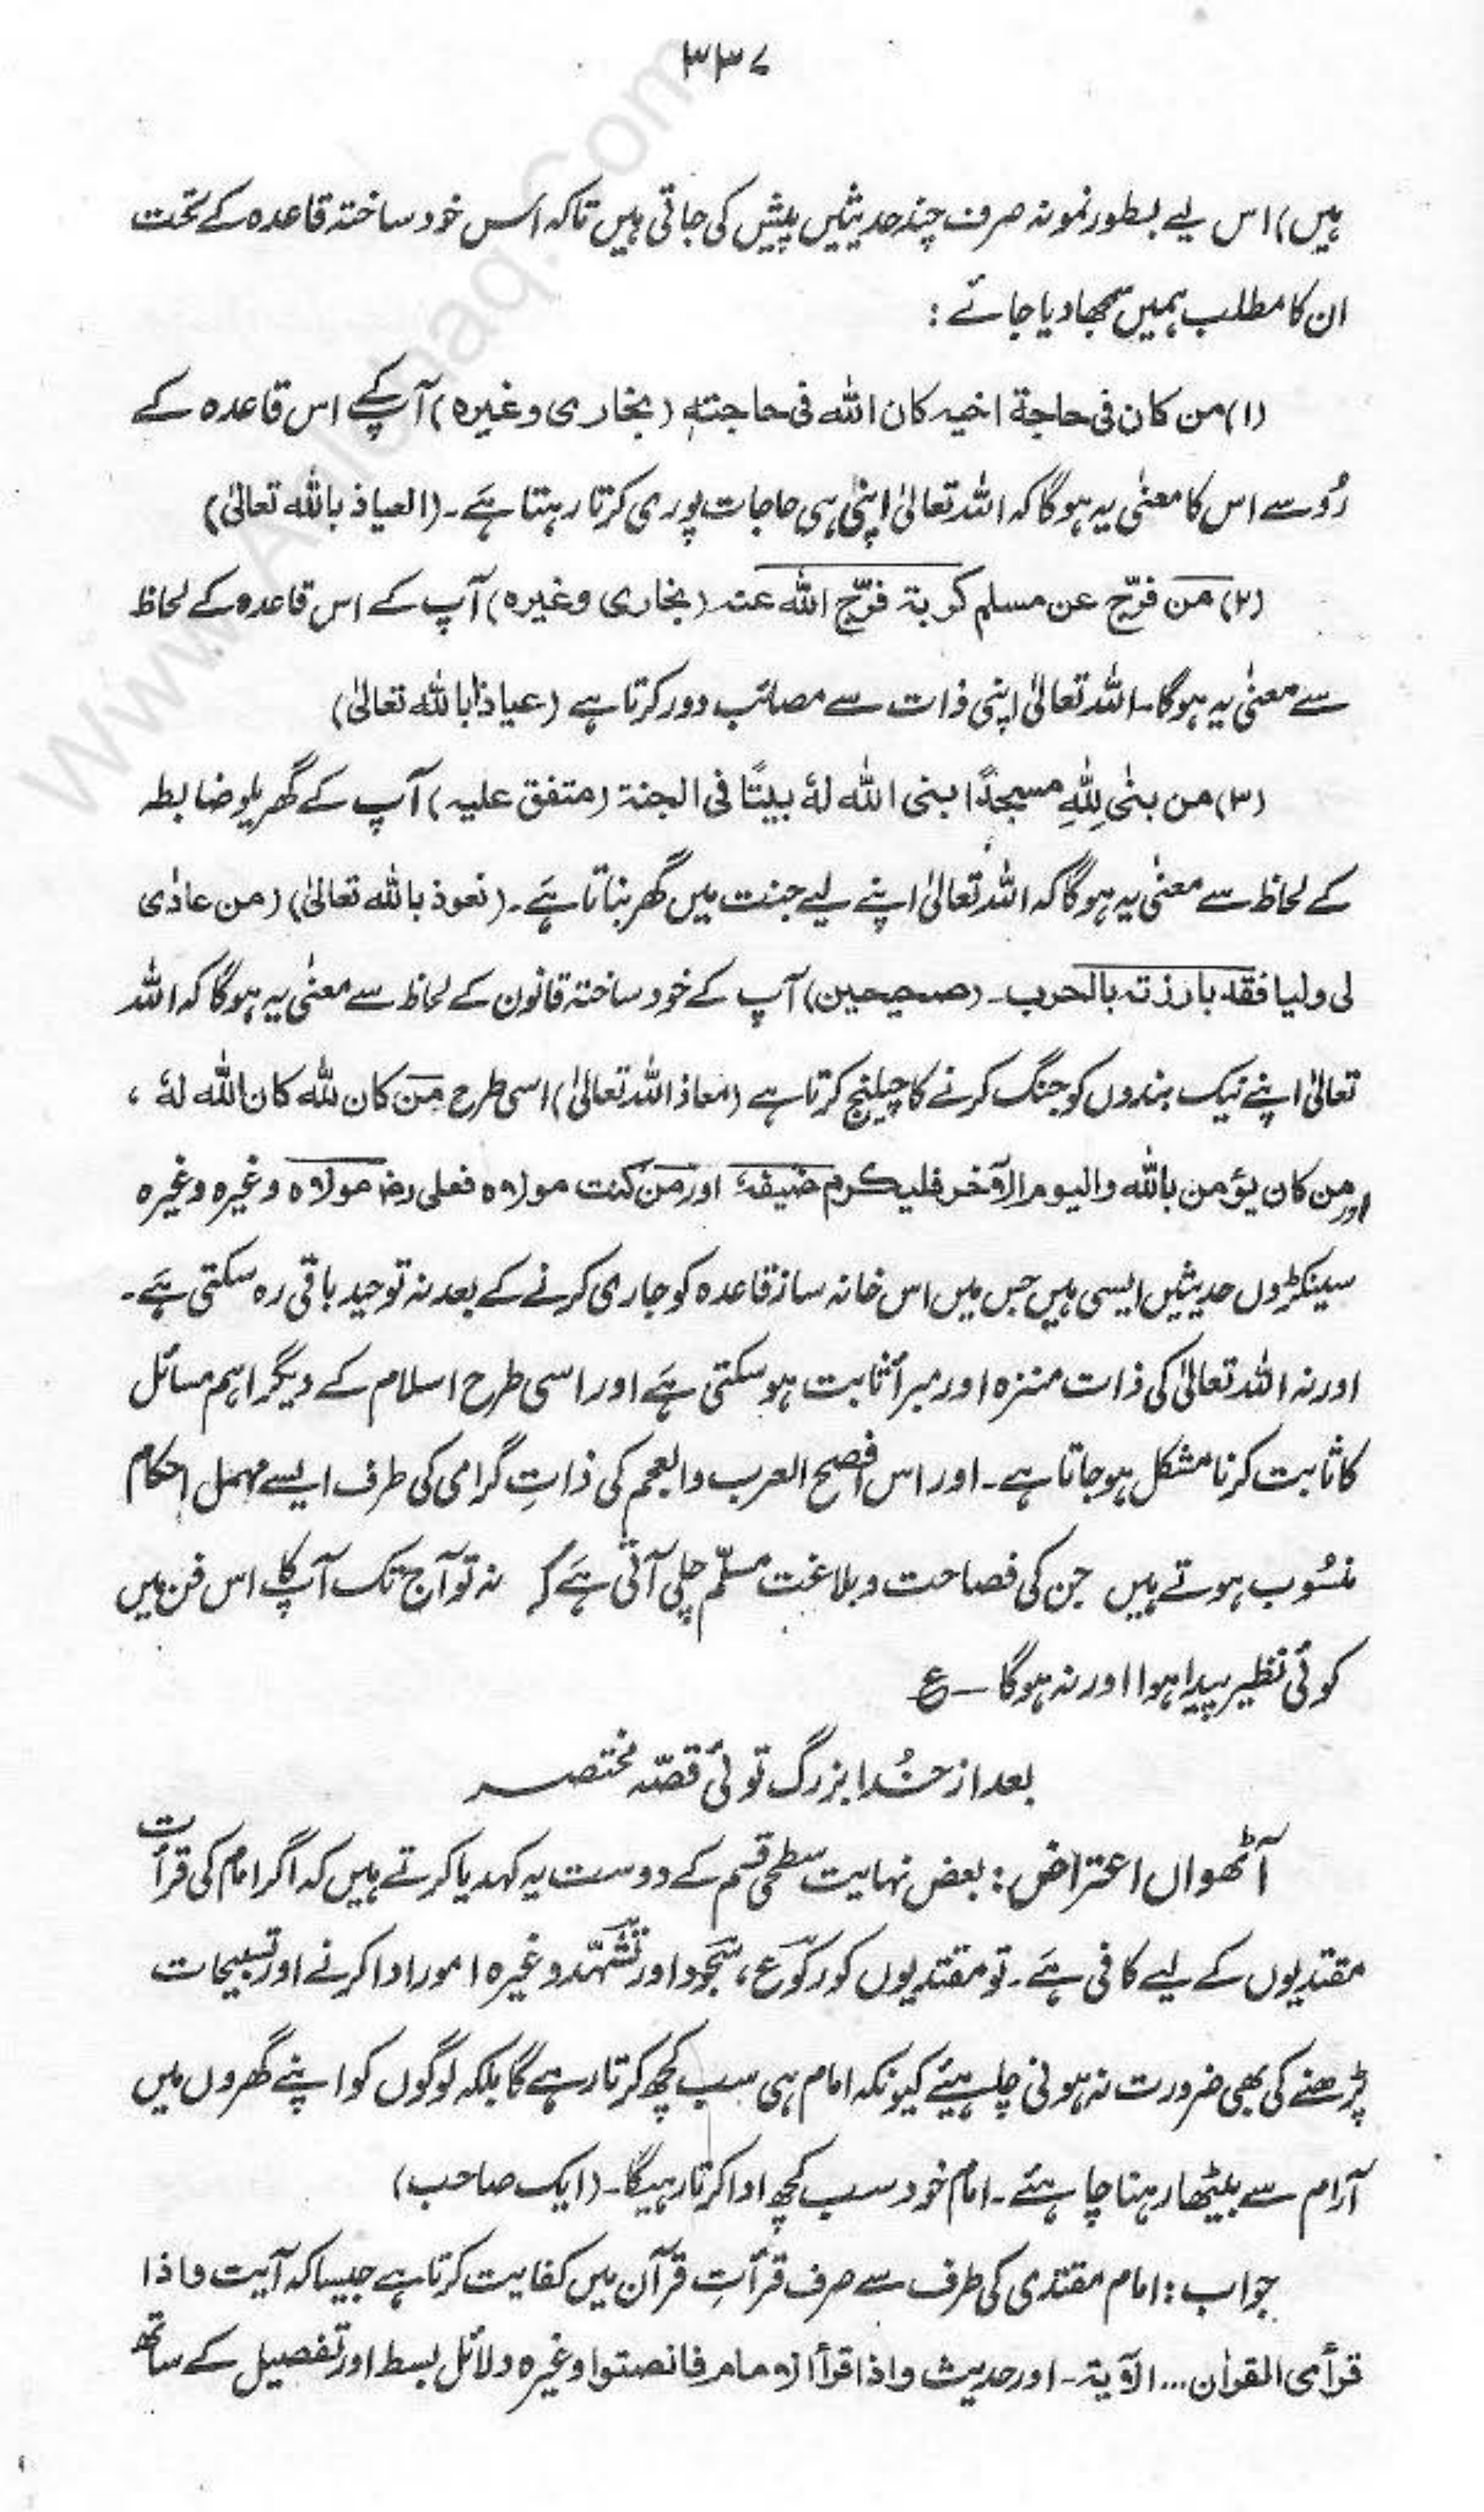 ۳۳۷
ہیں) اس لیے بطور نمونہ صرف چند حدیثیں پیش کی جاتی ہیں تاکہ اس خود ساختہ قاعدہ کے تحت
ان کا مطلب ہمیں سمجھا دیا جائے :
(۱) من کان فی حاجة اخیہ کان اللہ فی حاجتہٖ (بخاری وغیرہ) آپ کے اس قاعدہ کے
رُو سے اس کا معنٰی یہ ہوگا کہ اللہ تعالیٰ اپنی ہی حاجات پوری کرتا رہتا ہے۔ (العیاذ باللہ تعالیٰ)
(۲) من فرّج عن مسلم کربة فرّج اللہ عنہ (بخاری وغیرہ) آپ کے اس قاعدہ کے لحاظ
سے معنٰی یہ ہوگا۔ اللہ تعالیٰ اپنی ذات سے مصائب دور کرتا ہے (عیاذًا باللہ تعالیٰ)
(۳) من بنٰی لِلّٰہِ مسجدًا بنی اللہ لہٗ بیتًا فی الجنة (متفق علیہ) آپ کے گھریلو ضابطہ
کے لحاظ سے معنٰی یہ ہوگا کہ اللہ تعالیٰ اپنے لیے جنت میں گھر بناتا ہے۔ (نعوذ باللہ تعالیٰ) (من عادٰی
لی ولیا فقد بارزتہ بالحرب۔ (صحیحین) آپ کے خود ساختہ قانون کے لحاظ سے معنٰی یہ ہوگا کہ اللہ
تعالیٰ اپنے نیک بندوں کو جنگ کرنے کا چیلنج کرتا ہے (معاذ اللہ تعالیٰ) اسی طرح من کان للہ کان اللہ لہٗ ،
اور من کان یؤمن باللہ والیوم الآخر فلیکرم ضیفہٗ اور من کنت مولاہ فعلی رضؓ مولاہ وغیرہ وغیرہ
سینکڑوں حدیثیں ایسی ہیں جس میں اس خانہ ساز قاعدہ کو جاری کرنے کے بعد نہ توحید باقی رہ سکتی ہے۔
اور نہ اللہ تعالیٰ کی ذات منزہ اور مبرأ ثابت ہو سکتی ہے اور اسی طرح اسلام کے دیگر اہم مسائل
کا ثابت کرنا مشکل ہو جاتا ہے۔ اور اس افصح العرب والعجم کی ذاتِ گرامی کی طرف ایسے مہمل احکام
منسُوب ہوتے ہیں جن کی فصاحت و بلاغت مسلّم چلی آتی ہے کہ نہ تو آج تک آپ کا اس فن میں
کوئی نظیر پیدا ہوا اور نہ ہوگا ــ ع
بعد از خُدا بزرگ توئی قصّہ مختصر
آٹھواں اعتراض : بعض نہایت سطحی قسم کے دوست یہ کہدیا کرتے ہیں کہ اگر امام کی قرأت
مقتدیوں کے لیے کافی ہے۔ تو مقتدیوں کو رکوع، سجود اور تشہّد وغیرہ امور ادا کرنے اور تسبیحات
پڑھنے کی بھی ضرورت نہ ہونی چاہیئے کیونکہ امام ہی سب کچھ کرتا رہے گا بلکہ لوگوں کو اپنے گھروں میں
آرام سے بیٹھا رہنا چاہئے۔ امام خود سب کچھ ادا کرتا رہیگا۔ (ایک صاحب)
جواب : امام مقتدی کی طرف سے صرف قرأتِ قرآن میں کفایت کرتا ہے جیسا کہ آیت واذا
قرأی القراٰن ... الآیة۔ اور حدیث واذا قرأ الامام فانصتوا وغیرہ دلائل بسط اور تفصیل کے ساتھ